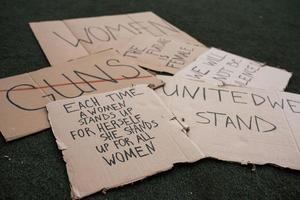 WOMEN
THE FUTURE
IS FEMALE
GUNS
WE WILL
NOT BE
SILENCED
UNITED WE
STAND
EACH TIME
A WOMEN
STANDS UP
FOR HERSELF
SHE STANDS
UP FOR ALL
WOMEN